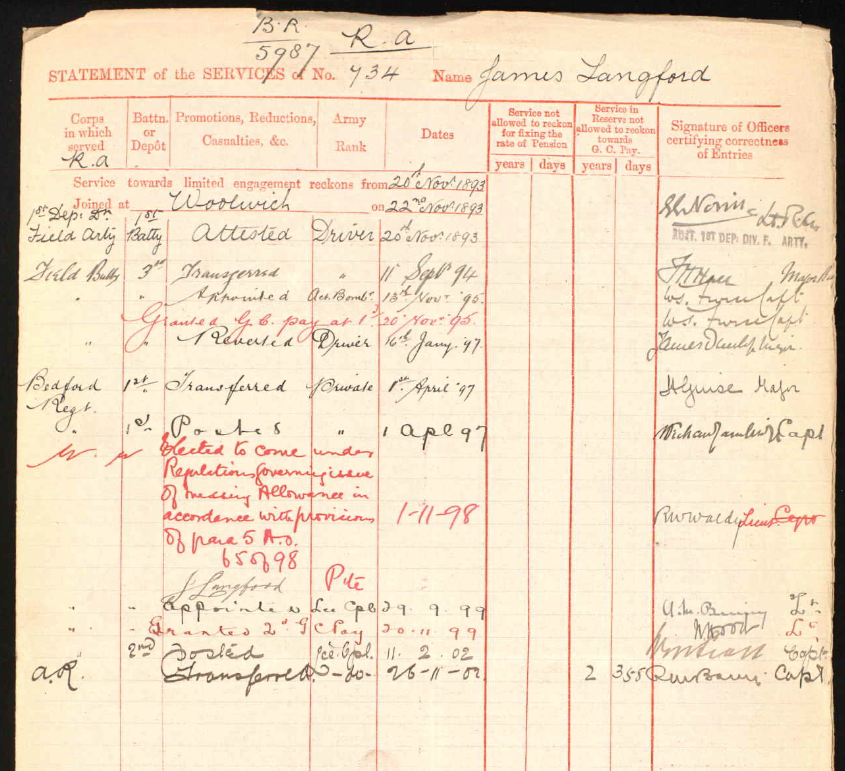 B.R
5987
R.a
STATEMENT of the SERVICES of No. 734 Name James Langford
Corps in which served
Battn. or Depôt
Promotions, Reductions, Casualties, &c.
Army Rank
Dates
Service not allowed to reckon for fixing the rate of Pension
years days
Service in Reserve not allowed to reckon towards G. C. Pay.
years days
Signature of Officers certifying correctness of Entries
R.a
Service towards limited engagement reckons from 20th Novr 1893
Joined at Woolwich on 22nd Novr 1893
1st Dep: Dn 1st
Field Arty Batty Attested Driver 20th Novr 1893
ADJT. 1ST DEP: DIV. F. ARTY.
Field Batty 3rd Transferred " 11 Sept 94 Major
" " Appointed Act. Bombr. 13th Novr '95 Capt
Granted G.C. pay at 1d 20 Novr '95. Capt
" " Reverted Driver 16th Jany. '97
Bedford 1st Transferred Private 1st April '97 Major
Regt.
" 1st Posted " 1 Apl 97 Capt
" " Elected to come under
Regulations governing issue
of messing Allowance in
accordance with provisions 1-11-98 Lieut
of para 5 A.O.
65 of 98
J Langford Pte
" " appointed Lce Cpl 29. 9. 99 Lt
" " Granted 2d G C Pay 20. 11. 99 Lt
" 2nd posted Lce Cpl. 11. 2. 02 Capt
A.R. Transferred -do- 26-11-02. 2 355 Capt